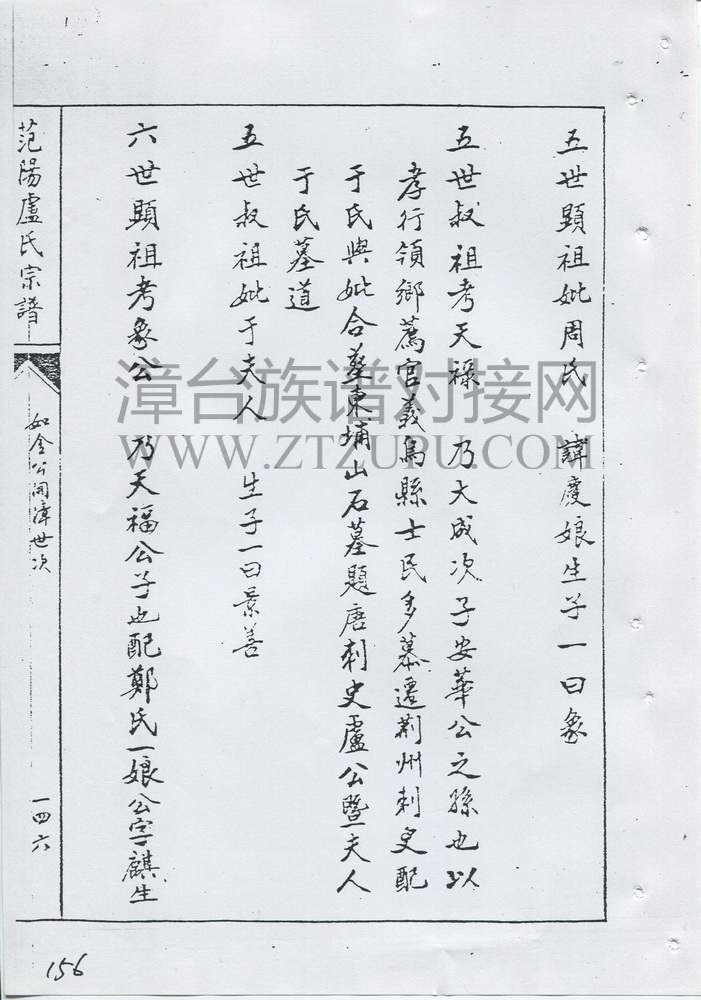 五世顯祖妣周氏 諱慶娘生子一曰象
五世叔祖考天祿 乃大成次子安華公之孫也以
孝行領鄉薦官義烏縣士民多慕遷荆州刺史配
于氏與妣合葬東埔山石墓題唐刺史盧公暨夫人
于氏墓道
五世叔祖妣于夫人 生子一曰景善
六世顯祖考象公 乃天福公子也配鄭氏一娘公字麒生
范陽盧氏宗譜
如金公開漳世次
一四六
156
漳台族谱对接网
WWW.ZTZUPU.COM